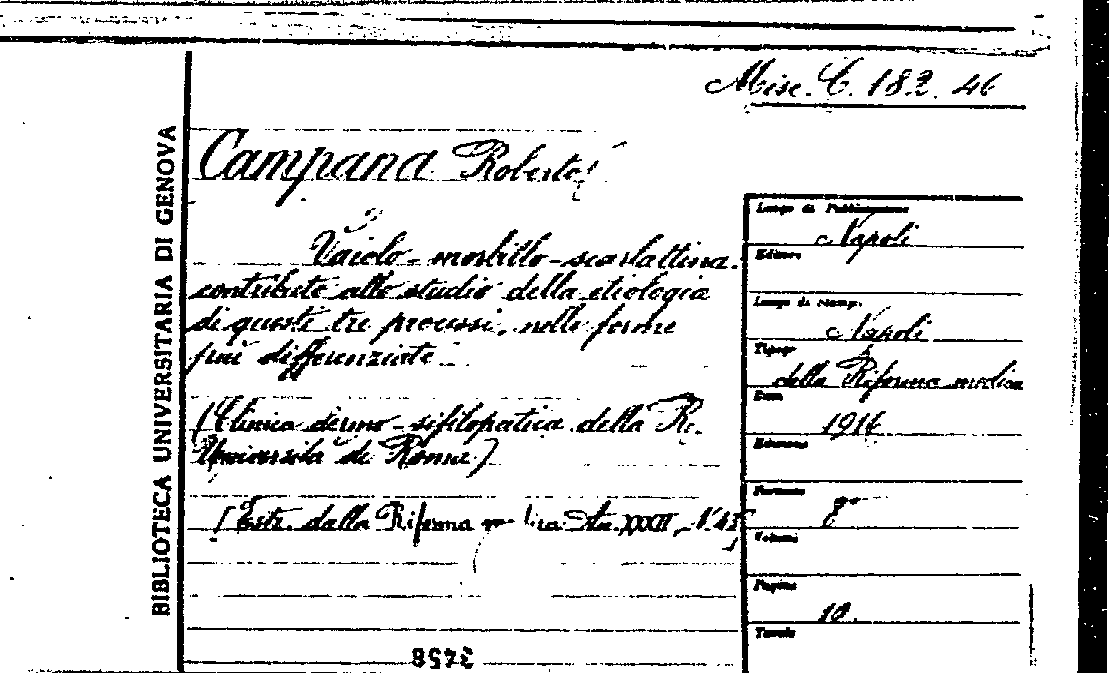 Misc. C. 182. 46
BIBLIOTECA UNIVERSITARIA DI GENOVA
Campana Roberto
Vaiolo - morbillo - scarlattina.
contributo allo studio della etiologia
di questi tre processi, nelle forme
più differenziate
(Clinica dermo-sifilopatica della R.
Università di Roma)
[Estr. dalla Riforma medica An. XXXII, N. 45]
3458
Luogo di Pubblicazione
Napoli
Editore
Luogo di stampa
Napoli
Tipogr
della Riforma medica
Data
1916
Edizione
Formato
8°
Volumi
Pagine
10.
Tavole